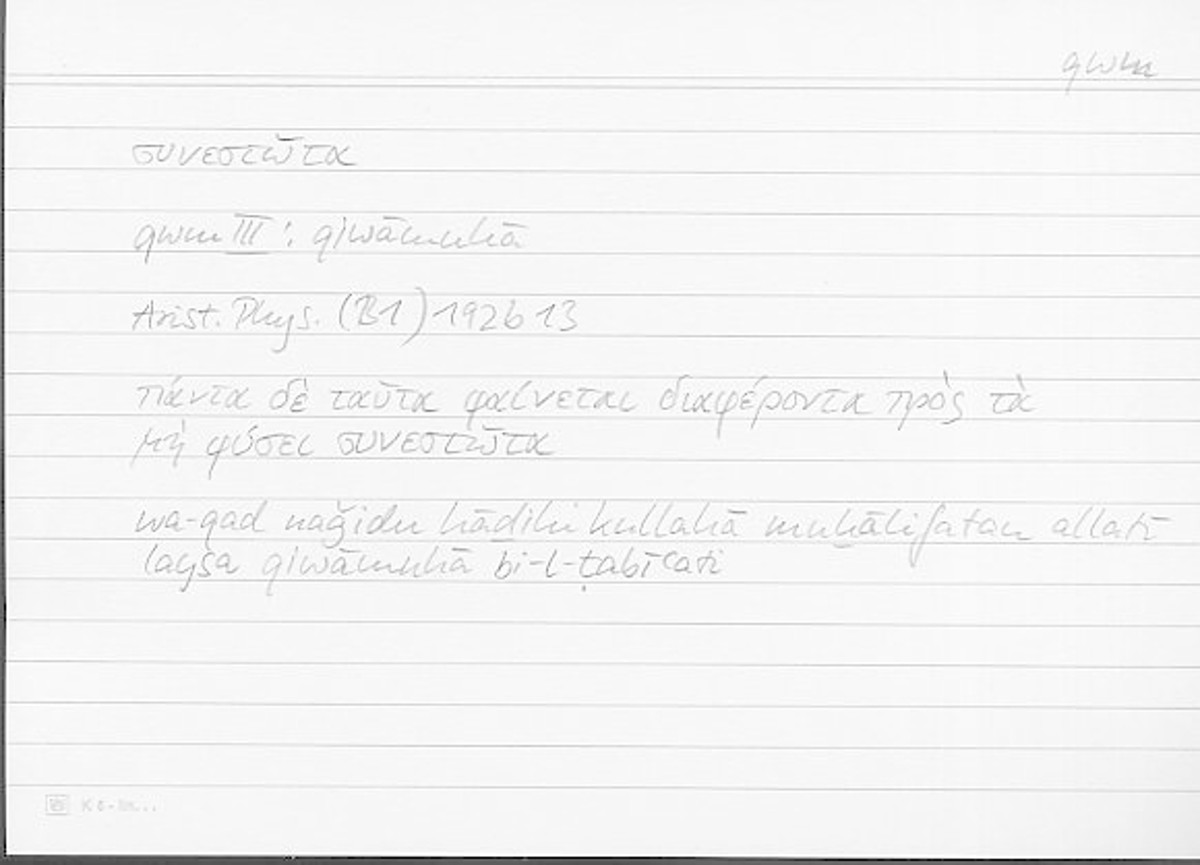 qwm
συνεστῶτα
qwm III: qiwāmuhā
Arist. Phys. (B1) 192b13
πάντα δὲ ταῦτα φαίνεται διαφέροντα πρὸς τὰ
μὴ φύσει συνεστῶτα
wa-qad naǧidu hāḏihi kullahā muḫālifatan allatī
laysa qiwāmuhā bi-l-ṭabīʿati